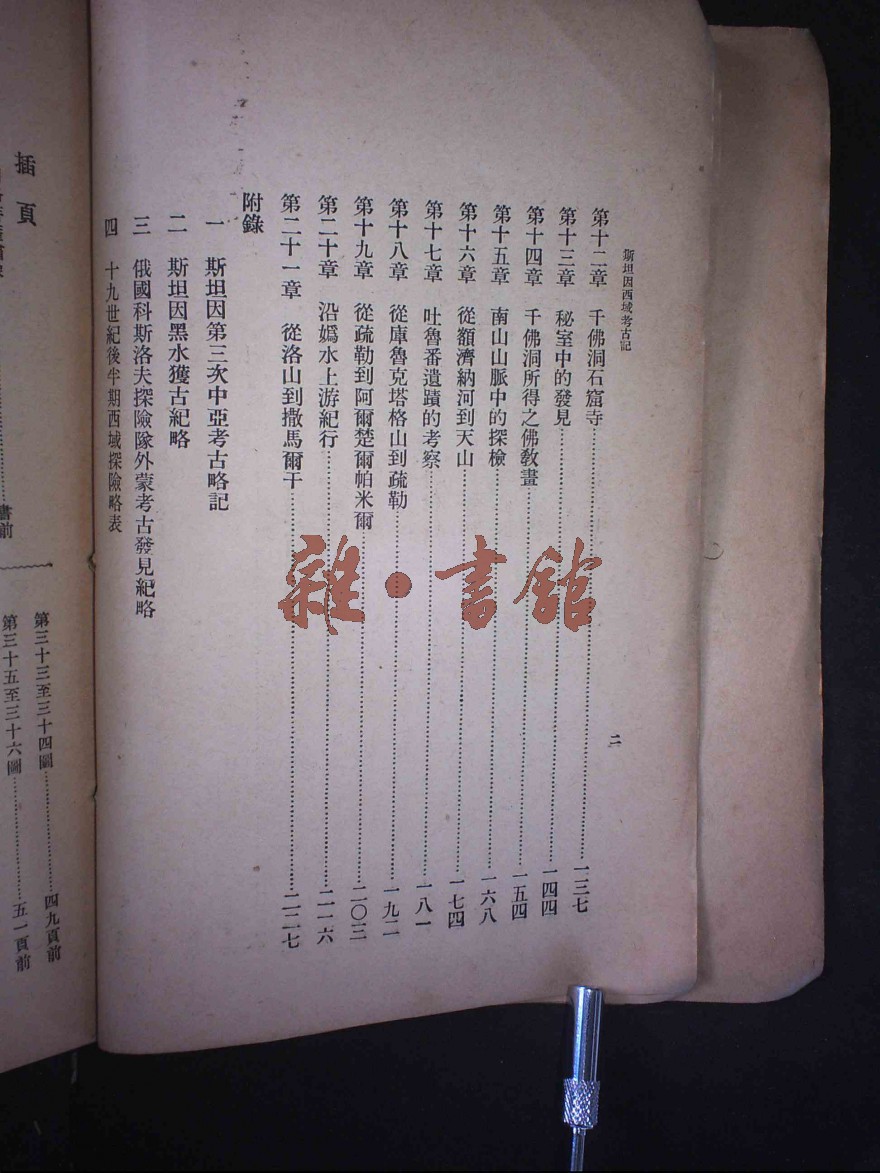 斯坦因西域考古記
二
第十二章　千佛洞石窟寺……一三七
第十三章　秘室中的發見……一四四
第十四章　千佛洞所得之佛教畫……一五四
第十五章　南山山脈中的探檢……一六八
第十六章　從額濟納河到天山……一七四
第十七章　吐魯番遺蹟的考察……一八一
第十八章　從庫魯克塔格山到疏勒……一九二
第十九章　從疏勒到阿爾楚爾帕米爾……二〇三
第二十章　沿嬀水上游紀行……二一六
第二十一章　從洛山到撒馬爾干……二二七
附錄
一　斯坦因第三次中亞考古略記
二　斯坦因黑水獲古紀略
三　俄國科斯洛夫探險隊外蒙考古發見紀略
四　十九世紀後半期西域探險略表
雜·書館
插頁
書前
第三十三至三十四圖……四九頁前
第三十五至三十六圖……五一頁前